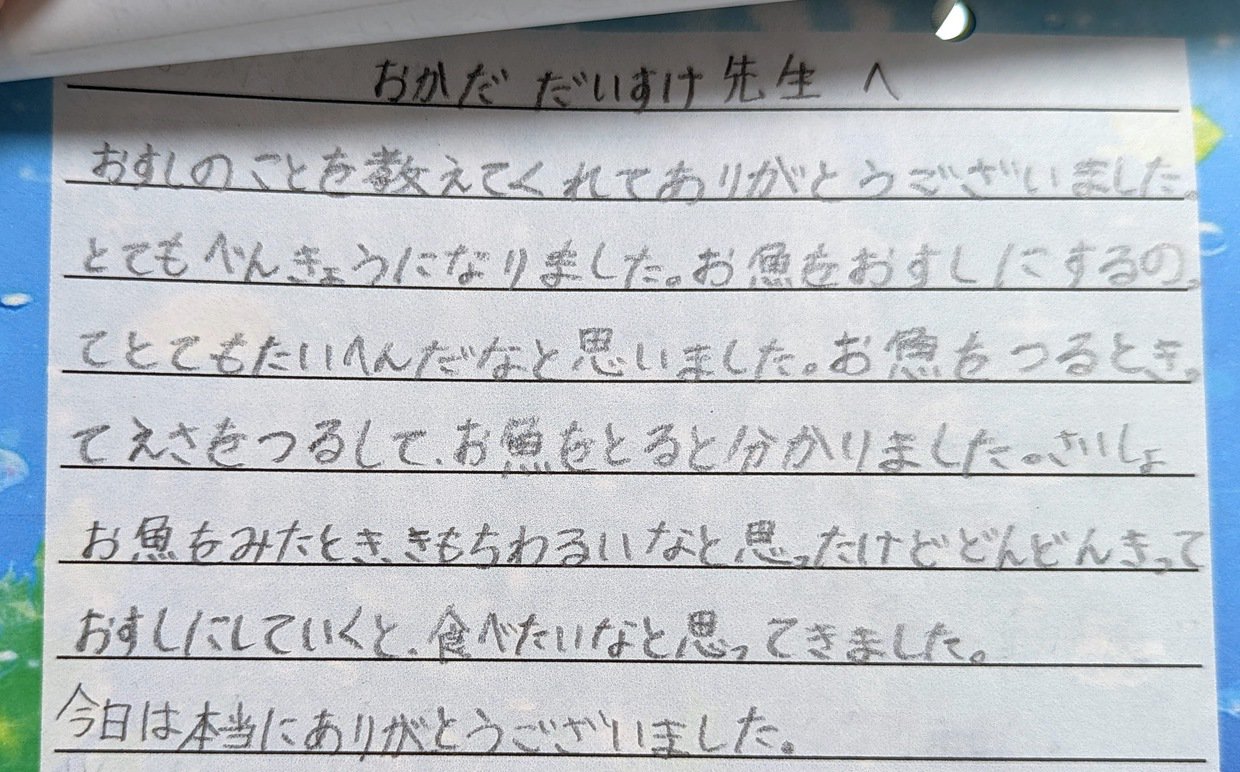 おかだ だいすけ先生 へ
おすしのことを教えてくれてありがとうございました。
とてもべんきょうになりました。お魚をおすしにするの、
てとてもたいへんだなと思いました。お魚をつるとき、
てえさをつるして、お魚をとると分かりました。さいしょ
お魚をみたとき、きもちわるいなと思ったけどどんどんきって
おすしにしていくと、食べたいなと思ってきました。
今日は本当にありがとうございました。